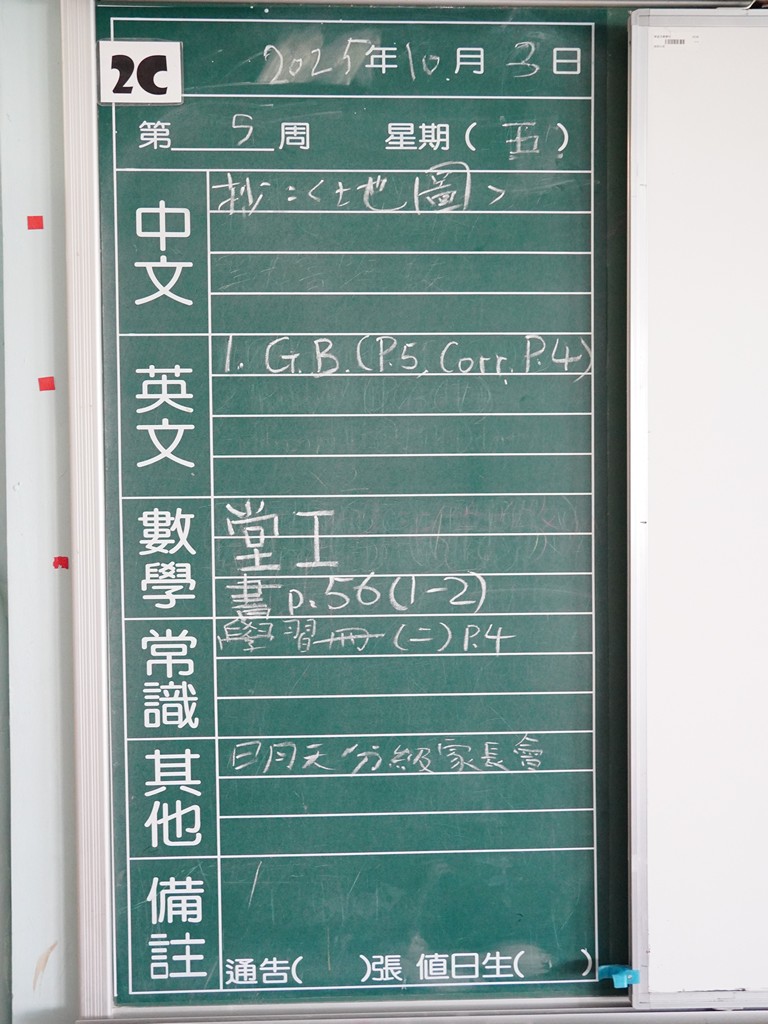 2C
2025年10月3日
第5周 星期(五)
中文
抄:<地圖>
英文
1. G.B.(P.5, Corr. P.4)
數學
堂工
書 p.56(1-2)
常識
學習冊(二)P.4
其他
分級家長會
備註
通告( )張 值日生( )